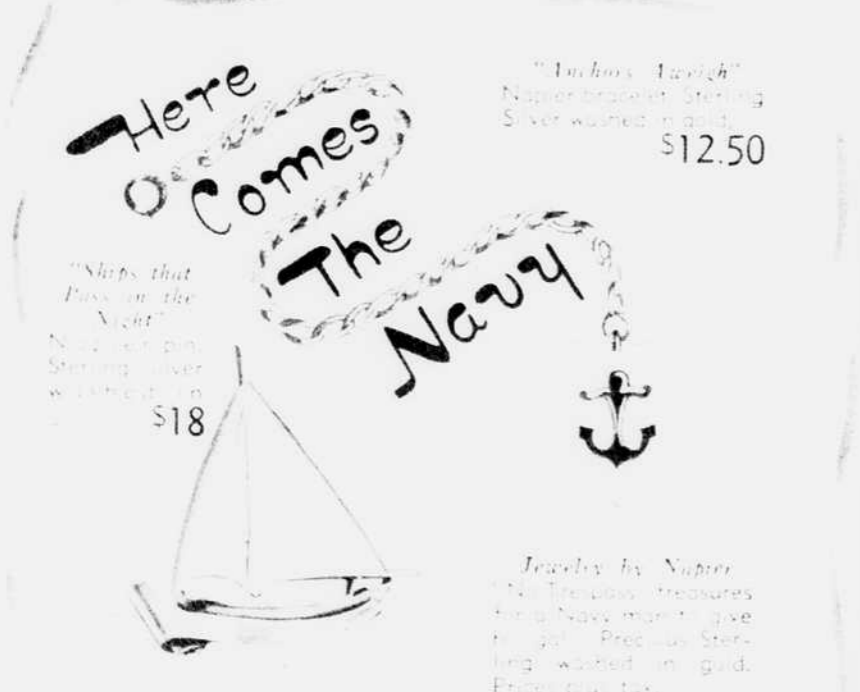 Here
Comes
The
Navy
"Anchors Aweigh"
Napier bracelet. Sterling
Silver washed in gold.
$12.50
"Ships that
Pass in the
Night"
pin.
Sterling Silver
$18
Jewelry by Napier
"No Trespass" treasures
for a Navy man to give
Precious Ster-
ling washed in gold.
Prices plus tax.